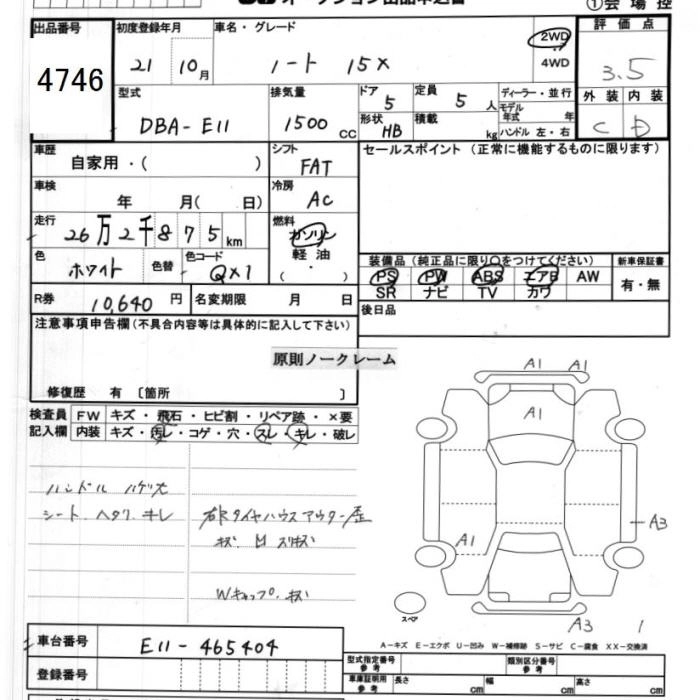 オークション出品申込書
①会場控
出品番号 初度登録年月 車名・グレード 評価点
4746 21 10月 ノート 15X 2WD 4WD 3.5
型式 排気量 ドア 定員 ディーラー・並行 外装 内装
DBA-E11 1500cc 5 5人 モデル年式 年式 C D
形状 HB 積載 kg ハンドル 左・右
車歴 自家用・( ) シフト FAT セールスポイント (正常に機能するものに限ります)
車検 年 月( 日) 冷房 AC
走行 26万2千875km 燃料 ガソリン
軽油
( ・ )
色 ホワイト 色替 色コード QX1
装備品 (純正品に限り○をつけてください) 新車保証書
PS PW ABS エアB AW 有・無
SR ナビ TV カワ
R券 10,640円 名変期限 月 日 後日品
注意事項申告欄(不具合内容等は具体的に記入して下さい)
原則ノークレーム
修復歴 有 〔箇所 〕
検査員 FW キズ・飛石・ヒビ割・リペア跡・×要
記入欄 内装 キズ・汚レ・コゲ・穴・スレ・キレ・破レ
A1 A1
A1
ハンドル ハゲ大
シート ヘタリ キレ 右Rタイヤハウスアウター
A3
A1
Wキャップ キズ
スペア
A3 1
A-キズ E-エクボ U-凹み W-補修跡 S-サビ C-腐食 XX-交換済
車台番号 E11-465404
型式指定番号 参考 類別区分番号 参考
登録番号 車庫証明用 参考 長さ cm 幅 cm 高さ cm